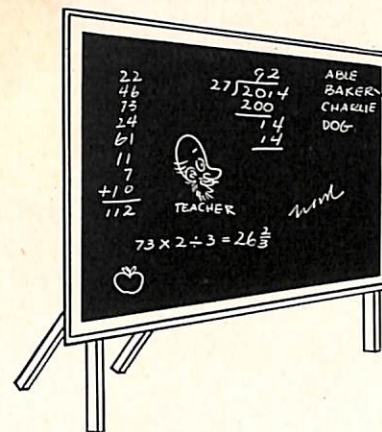 22
46
73
24
61
11
7
+10
112
92
27√2014
200
14
14
ABLE
BAKER
CHARLIE
DOG
TEACHER
73 × 2 ÷ 3 = 26 2/3